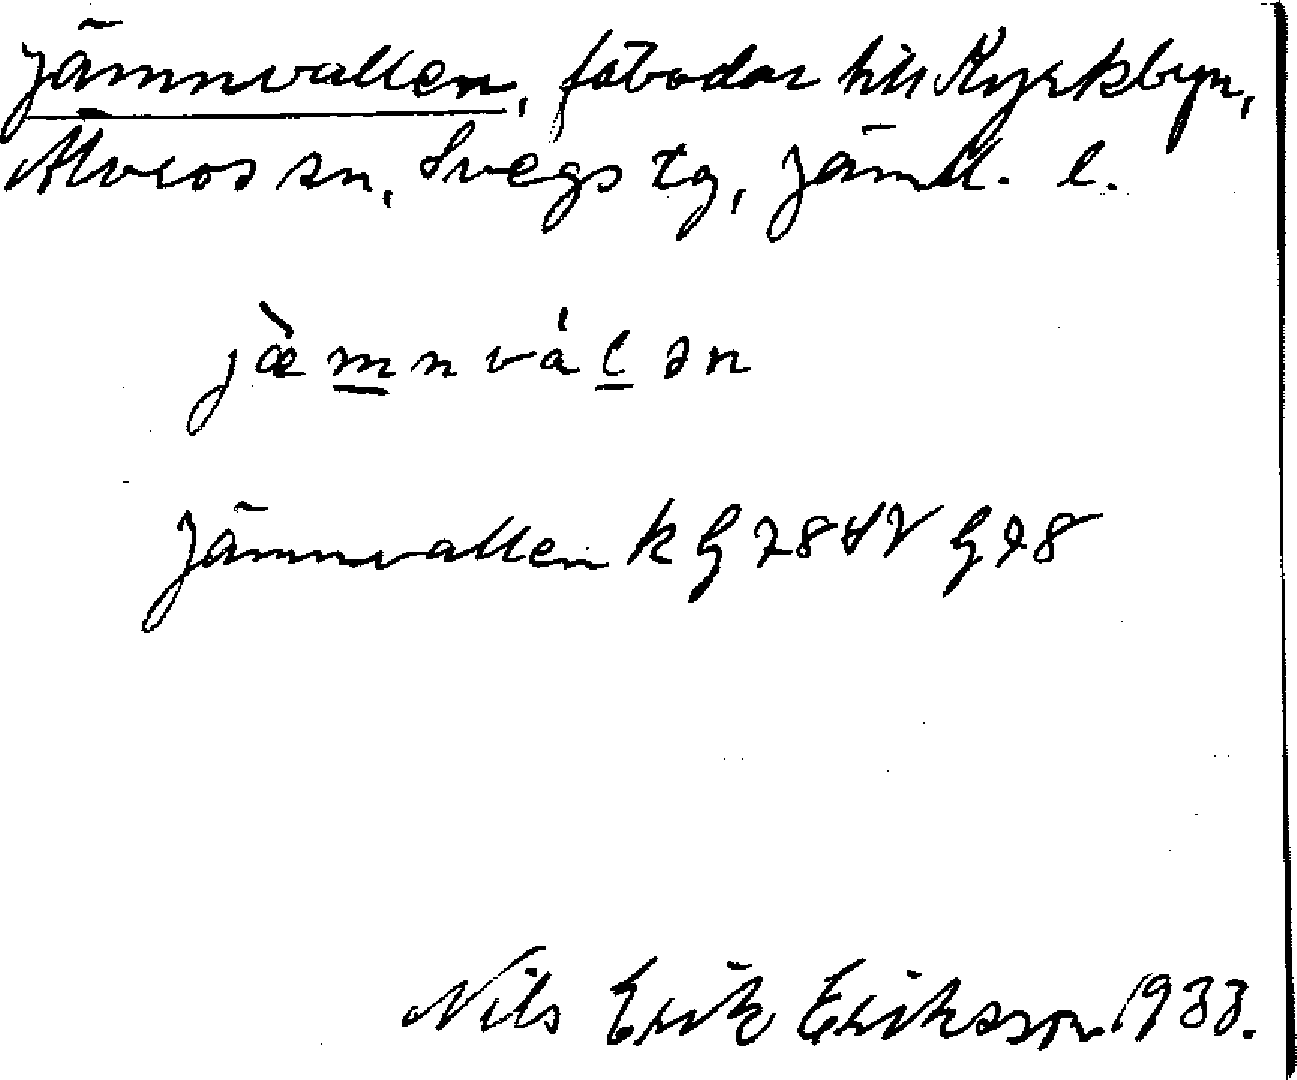 Jämnvallen, fäbodar till Kyrkbyn,
Älvros sn, Svegs tg, Jämtl. l.
jæ̀m̲nvál̲ən
Jämnvallen k G 28 SV G 28
Nils Erik Eriksson 1933.